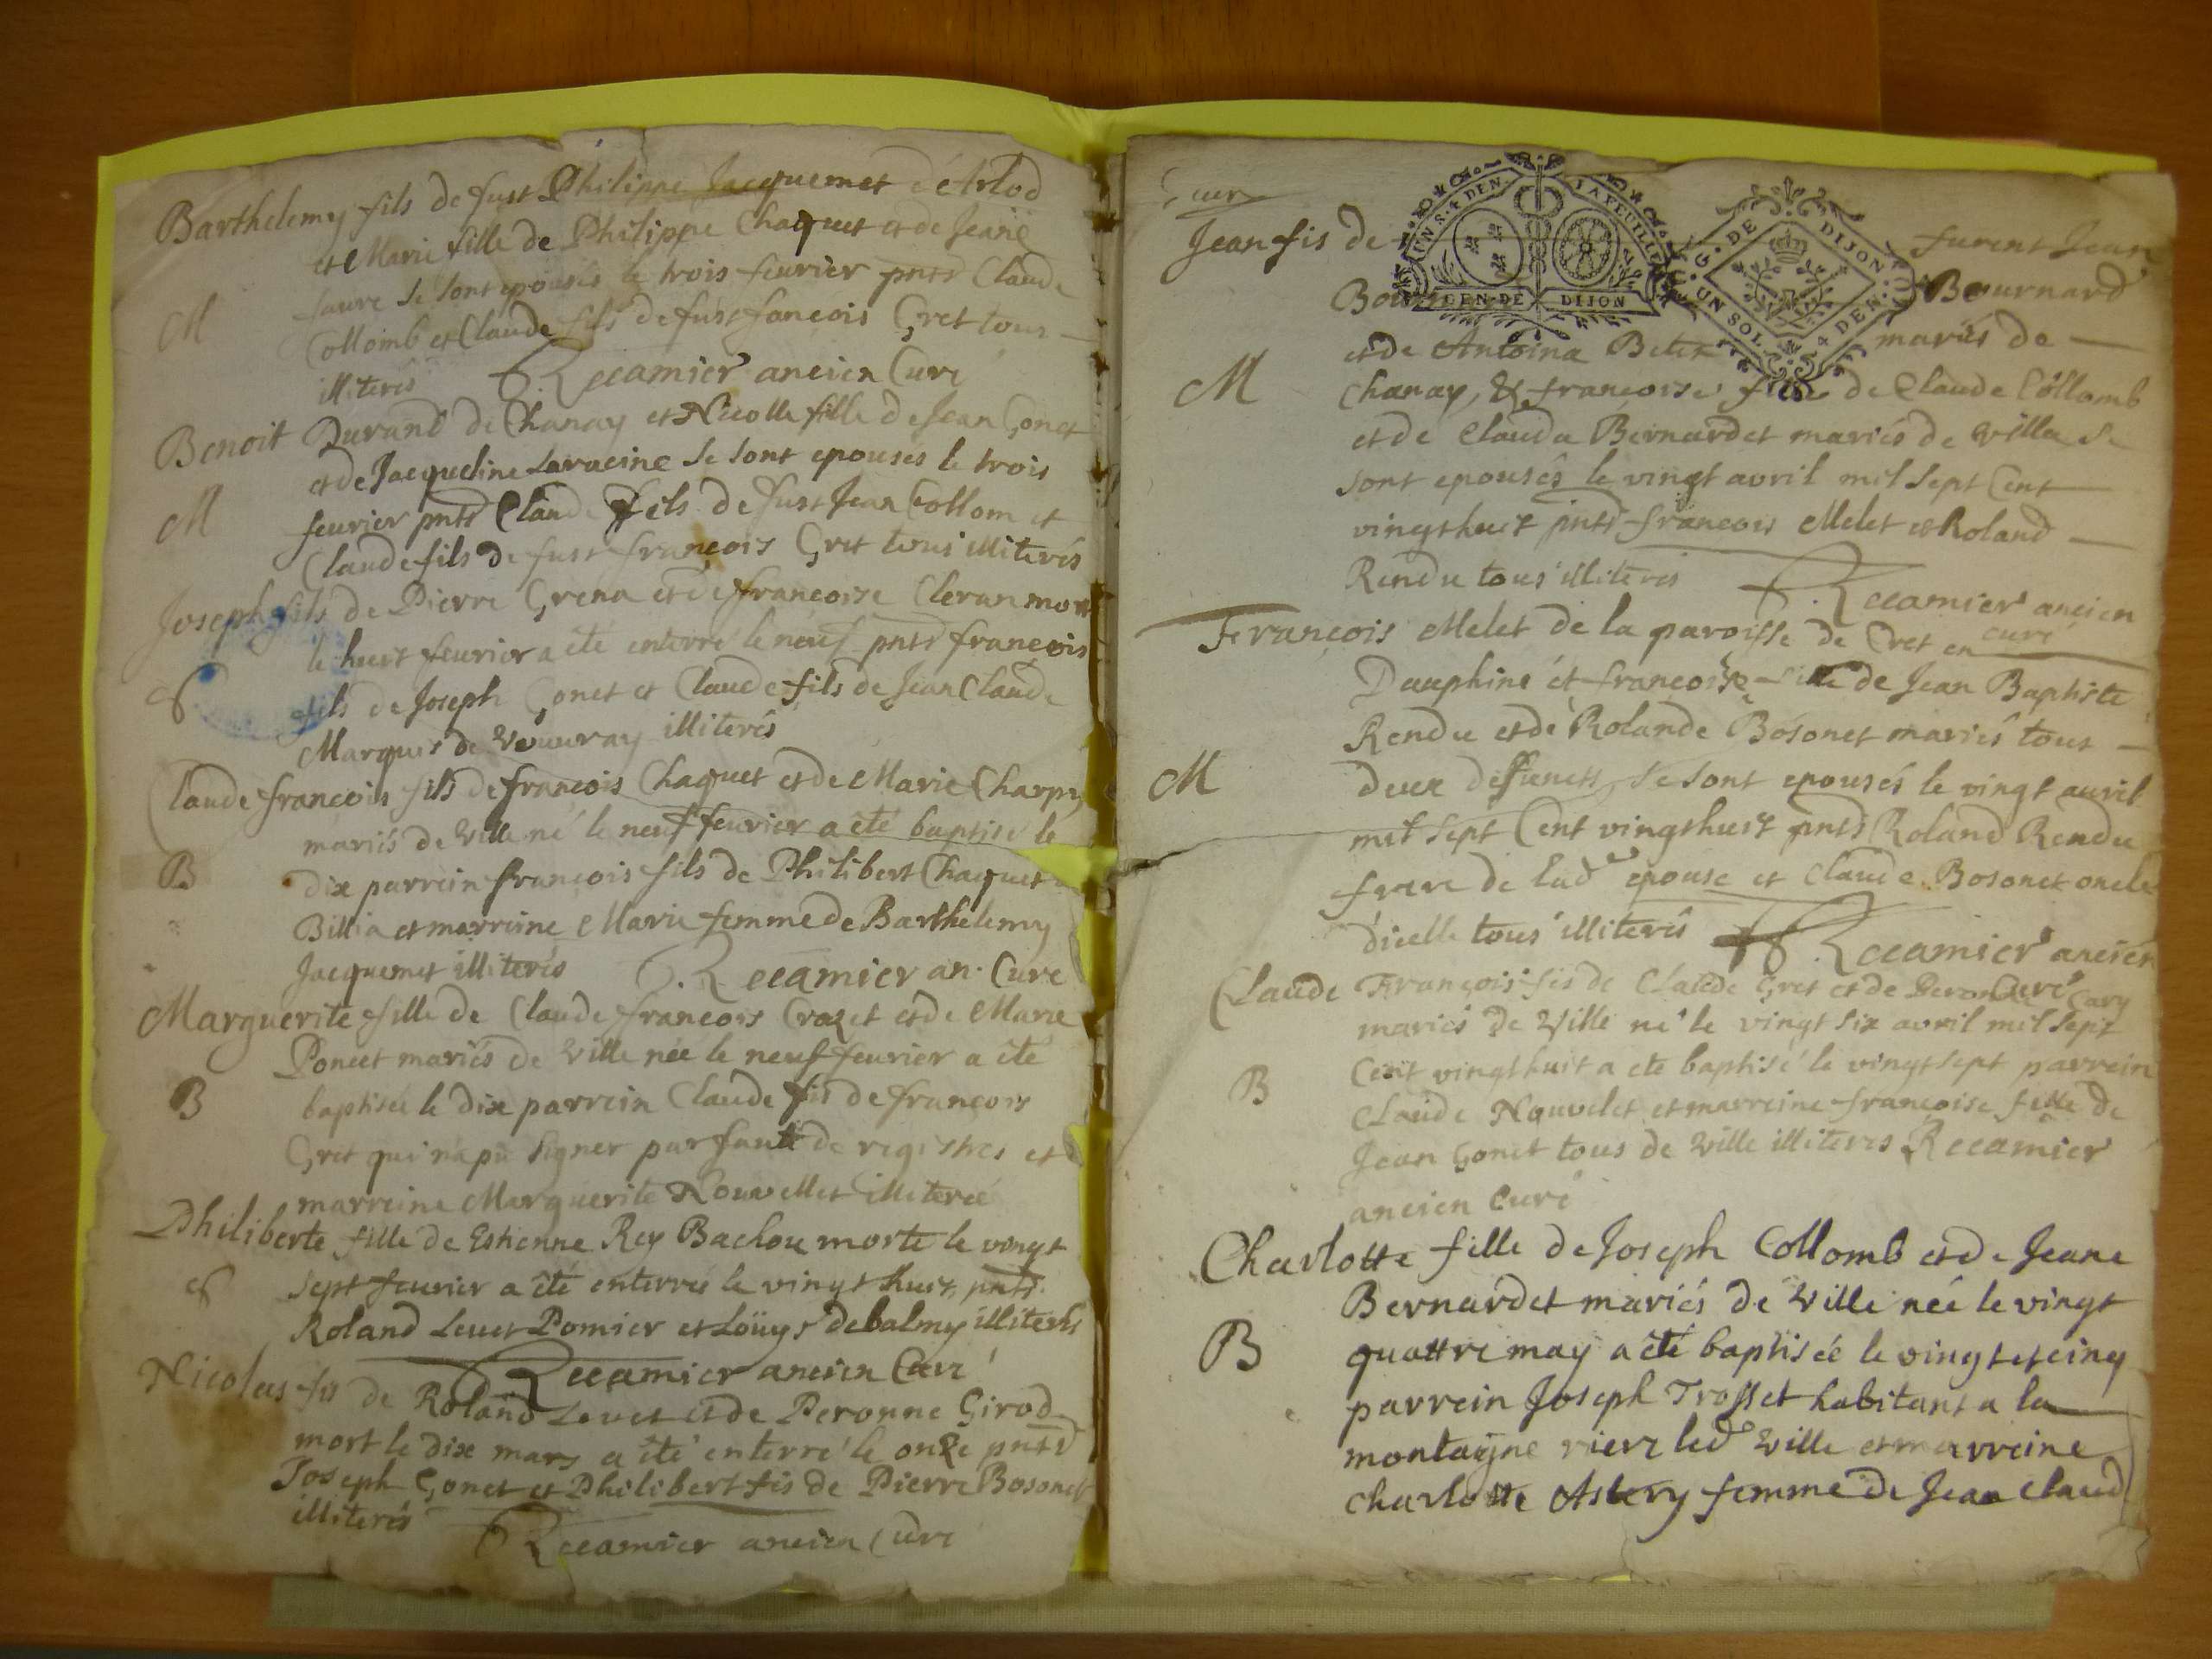 Barthelemy fils de fust Philippe Jacquemet d'Arlod
et Marie fille de Philippe Chaquet et de Jeane
favre se sont epousés le trois feurier pnts Claude
M
Collomb et Claude fils de fust francois Gret tous
illiterés Recamier ancien Curé
Benoit Durand de Chanay et Nicolle fille de Jean Gonet
et de Jacqueline Laracine se sont epousés le trois
M
feurier pnts Claude fils de fust Jean Collom et
Claude fils de fust françois Gret tous illiterés
Joseph fils de Pierre Grena et de francoise Cleran mort
le huit feurier a été enterré le neuf pnts françois
fils de Joseph Gonet et Claude fils de Jean Claude
Marquis de Vouvray illiterés
Claude francois fils de francois Chaquet et de Marie Charpy
mariés de Ville né le neuf feurier a été baptisé le
B
dix parrein françois fils de Philibert Chaquet
Billia et marreine Marie femme de Barthelemy
Jacquemet illiterés Recamier an. Curé
Marguerite fille de Claude francois Crozet et de Marie
Poncet mariés de Ville née le neuf feurier a été
B
baptisée le dix parrein Claude fis de francois
Gret qui n'a pu signer par faute de registres et
marreine Marguerite Nouvellet illiterée
Philiberte fille de Estienne Rey Bachou morte le vingt
sept feurier a été enterrée le vingt huit pnts
Roland Levet Pomier et Loüys debalmy illiterés
Recamier ancien Curé
Nicolas fis de Roland Levet et de Peronne Girod
mort le dix mars a été enterré le onze pnts
Joseph Gonet et Philibert fis de Pierre Bosonet
illiterés
Recamier ancien Curé
UN S. 4 DEN LA FEUILLE
GEN DE DIJON
G. DE DIJON
UN SOL 4 DEN.
Jean fis de furent Jean
Bournard
et de Antoina Betet mariés de
M
Chanay, & francoise fille de Claude Collomb
et de Clauda Bernardet mariés de Villa se
sont epousés le vingt avril mil sept Cent
vingthuit pnts francois Melet et Roland
Rendu tous illiterés Recamier ancien
curé
François Melet de la paroisse de Cret en
Dauphiné et francoise fille de Jean Baptiste
Rendu et de Rolande Bosonet mariés tous
M
deux deffuncts se sont epousés le vingt auril
mil sept Cent vingthuit pnts Roland Rendu
frere de lad epouse et Claude Bosonet oncle
d'icelle tous illiterés Recamier ancien
Curé
Claude François fis de Claude Gret et de Peronne Cary
mariés de Ville né le vingt six avril mil sept
B
Cent vingthuit a ete baptisé le vingtsept parrein
Claude Nouvelet et marreine francoise fille de
Jean Gonet tous de Ville illiterés Recamier
ancien Curé
Charlotte fille de Joseph Collomb et de Jeane
Bernardet mariés de Ville née le vingt
B
quattre may a été baptisée le vingt et cinq
parrein Joseph Trosset habitant a la
montagne riere led Ville et marreine
Charlotte Asbery femme de Jean Claud